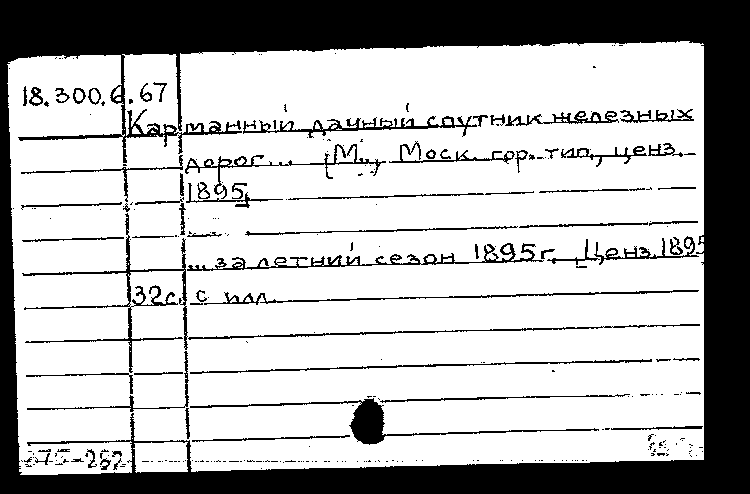 18.300.6.67
Карманный дачный спутник железных
дорог... [М.], Моск. гор. тип., ценз.
1895.
... за летний сезон 1895г. Ценз. 1895
32с. с илл.